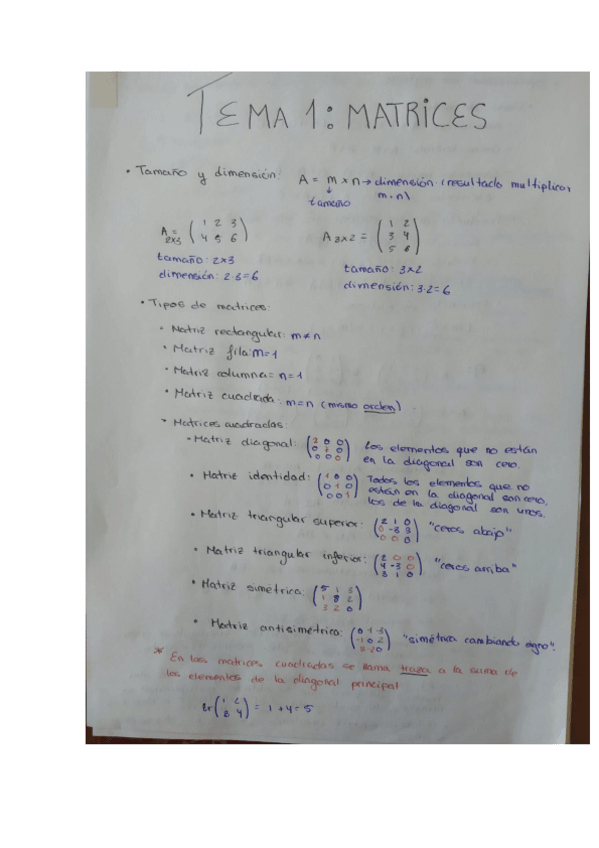 TEMA 1: MATRICES
• Tamaño y dimensión: A = m × n → dimensión (resultado multiplicar
↓ tamaño m · n)
A 2x3 = ( 1 2 3 A 3x2 = ( 1 2
4 5 6 ) 3 4
5 6 )
tamaño: 2x3 tamaño: 3x2
dimensión: 2·3=6 dimensión: 3·2=6
• Tipos de matrices:
• Matriz rectangular: m≠n
• Matriz fila: m=1
• Matriz columna= n=1
• Matriz cuadrada: m=n (mismo orden)
• Matrices cuadradas
• Matriz diagonal: Los elementos que no están
en la diagonal son cero.
• Matriz identidad: ( 1 0 0 Todos los elementos que no
0 1 0 están en la diagonal son cero,
0 0 1 ) los de la diagonal son unos.
• Matriz triangular superior: ( 2 1 0
0 -3 3 "ceros abajo"
0 0 0 )
• Matriz triangular inferior: ( 2 0 0
4 -3 0 "ceros arriba"
3 1 0 )
• Matriz simétrica: ( 5 1 3
1 8 2
3 2 0 )
• Matriz antisimétrica: ( 0 1 -3
-1 0 2 "simétrica cambiando signo".
3 -2 0 )
* En las matrices cuadradas se llama traza a la suma de
los elementos de la diagonal principal
tr ( 1 2
3 4 ) = 1 + 4 = 5